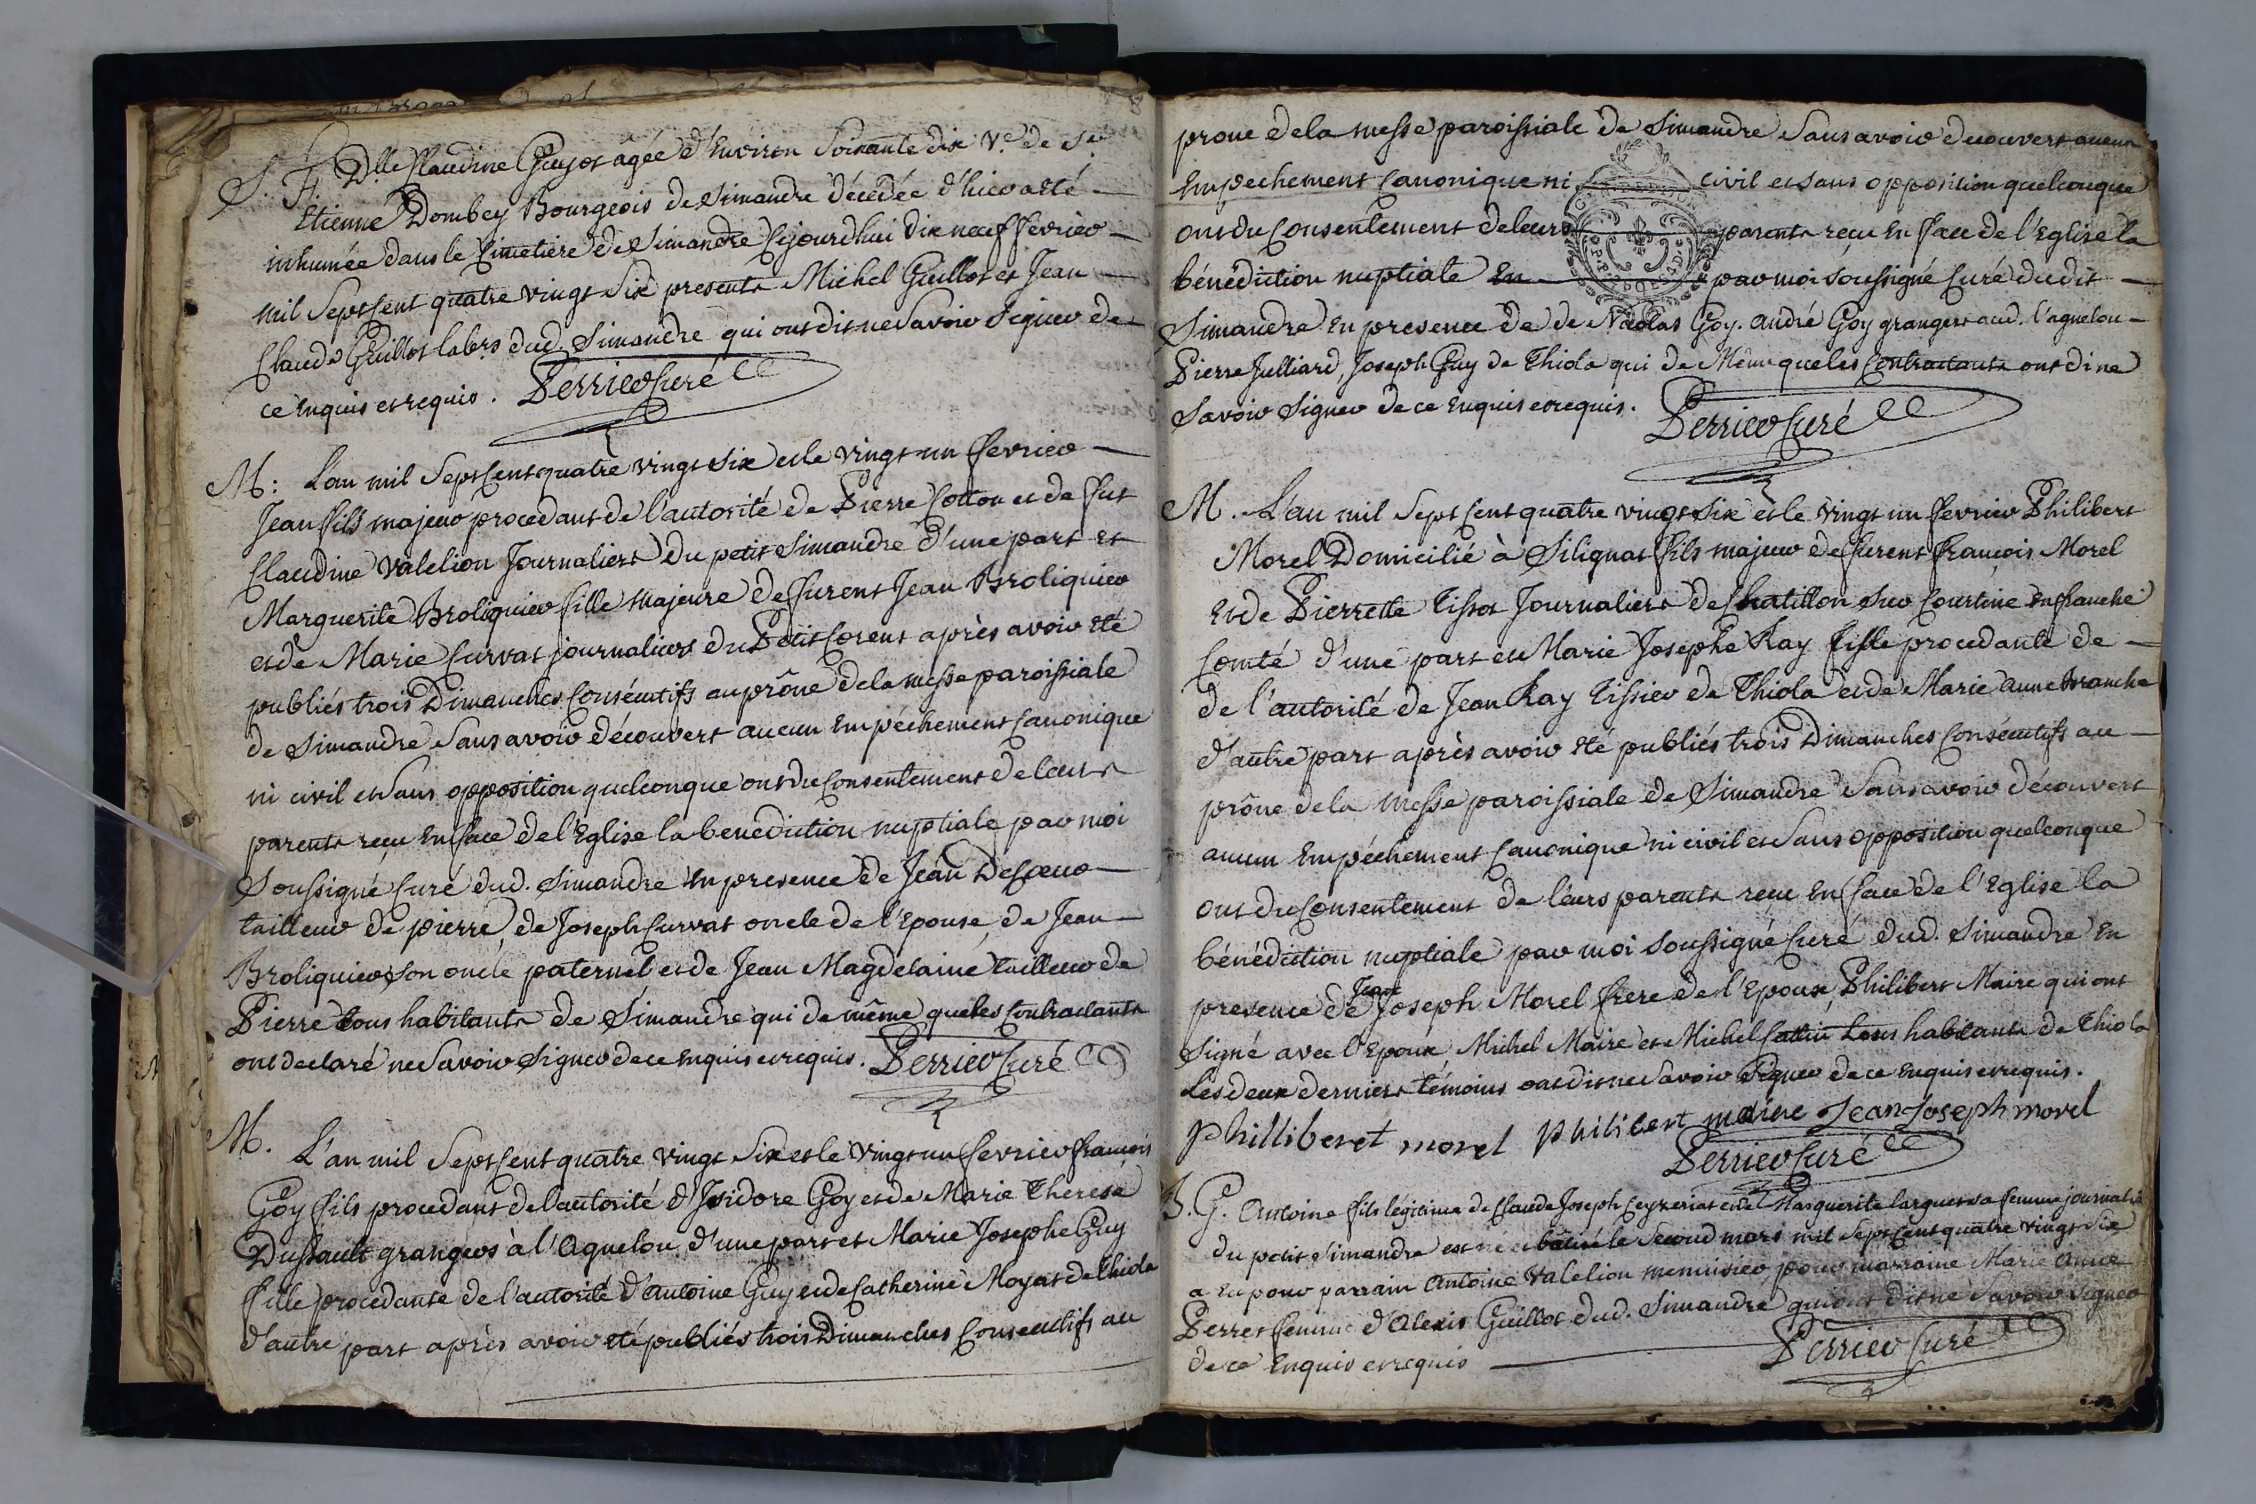 S. F. Dlle Claudine Guyot âgée d'Environ Soixante dix Ve. de Sr
Etienne Dombey Bourgeois de Simandre décédée d'hier a été
inhumée dans le Cimetière de Simandre Cejourdhui dix neuf fevrier
mil Sept Cent quatre vingt Six presents Michel Guillot et Jean
Claude Guillot labrs dud. Simandre qui ont dit ne Savoir Signer de
ce Enquis et requis. Perrier Curé
M: L'an mil Sept Cent quatre vingt six et le vingt un fevrier
Jean fils majeur procedant de l'autorité de Pierre Cotton et de fut
Claudine Valelion Journaliers du petit Simandre d'une part et
Marguerite Broliquier fille majeure de furent Jean Broliquier
et de Marie Curvat journaliers du Petit Corent après avoir été
publiés trois Dimanches Consécutifs au prône de la messe paroissiale
de Simandre Sans avoir découvert aucun Empéchement Canonique
ni civil et Sans opposition quelconque ont du Consentement de leurs
parents reçu En face de l'Eglise la benediction nuptiale par moi
Soussigné Curé dud. Simandre En presence de Jean Defoeur
tailleur de pierre, de Joseph Curvat oncle de l'Epouse, de Jean
Broliquier son oncle paternel et de Jean Magdelaine tailleur de
Pierre tous habitants de Simandre qui de même que les Contractants
ont declaré ne Savoir Signer de ce Enquis et requis. Perrier Curé
M. L'an mil Sept Cent quatre vingt Six et le vingt un fevrier francois
Goy fils procedant de l'autorité d'Isidore Goy et de Marie Therese
Dussault grangers à l'Agnelou d'une part et Marie Josephe Guy
fille procedante de l'autorité d'antoine Guy et de Catherine Moyat de Thiola
d'autre part après avoir été publiés trois Dimanches Consecutifs au
prone de la messe paroissiale de Simandre Sans avoir decouvert aucun
Empechement Canonique ni civil et sans opposition quelconque
ont du Consentement de leurs parents reçu En face de l'Eglise la
bénédiction nuptiale En par moi soussigné Curé du dit
Simandre En presence de de Nicolas Goy. andré Goy grangers aud. l'agnelou
Pierre Julliard, Joseph Guy de Thiola qui de Même que les Contractants ont di ne
Savoir Signer de ce Enquis et requis. Perrier Curé
M. L'an mil Sept Cent quatre vingt Six et le vingt un fevrier Philibert
Morel Domicilié à Silignat fils majeur de furent françois Morel
et de Pierrette Tissot Journaliers de Chatillon sur Courtine en franche
Comté d'une part et Marie Josephe Ray fille procedante de
de l'autorité de Jean Ray Tissier de Thiola et de Marie anne branche
d'autre part après avoir été publiés trois Dimanches Consécutifs au
prône de la Messe paroissiale de Simandre Sans avoir découvert
aucun Empéchement Canonique ni civil et Sans opposition quelconque
ont du Consentement de leurs parents reçu En face de l'Eglise la
bénédiction nuptiale par moi soussigné Curé dud. Simandre En
presence de Jean Joseph Morel frere de l'Epoux, Philibert Maire qui ont
Signé avec l'Epoux, Michel Maire et Michel Cattin tous habitants de Thiola
Les deux derniers témoins ont dit ne Savoir Signer de ce Enquis et requis.
philliberet morel philibert maire Jean-Joseph morel
Perrier Curé
B. G. Antoine fils légitime de Claude Joseph Ceyzeriat et de Marguerite Larquet sa femme journaliers
du petit Simandre est né et batisé le Second mars mil Sept Cent quatre vingt Six
a Eu pour parrain Antoine Valelion menuisier pour marraine Marie Anne
Perret femme d'Alexis Guillot dud. Simandre qui ont dit ne Savoir Signer
de ce Enquis et requis Perrier Curé